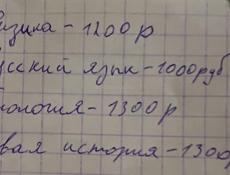 изика - 1200 р
усский язык - 1000руб
иология - 1300 р
вая история - 1300р